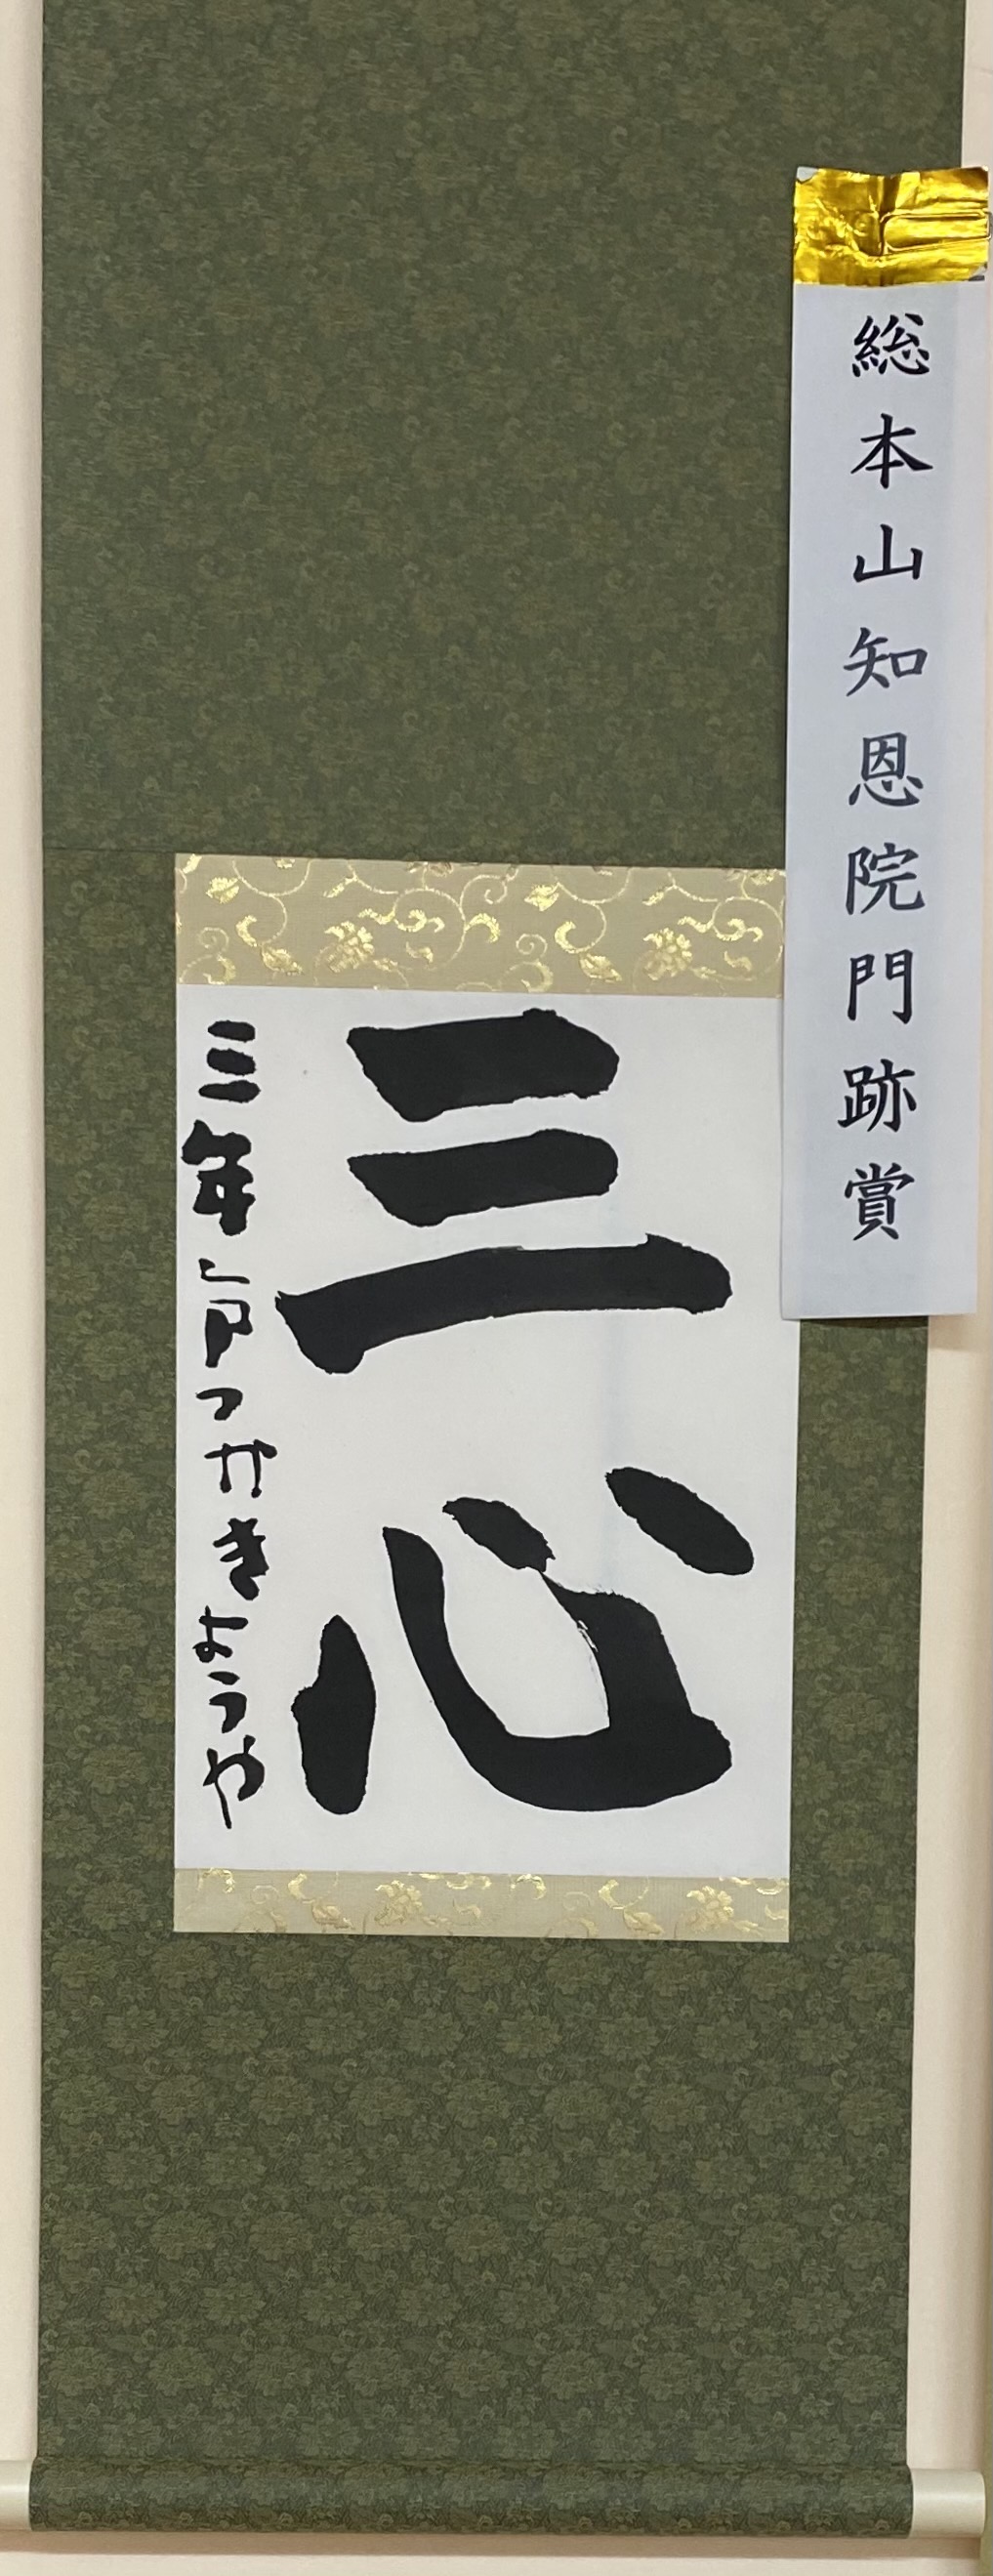 総本山知恩院門跡賞
三心
三年 戸つかきようや